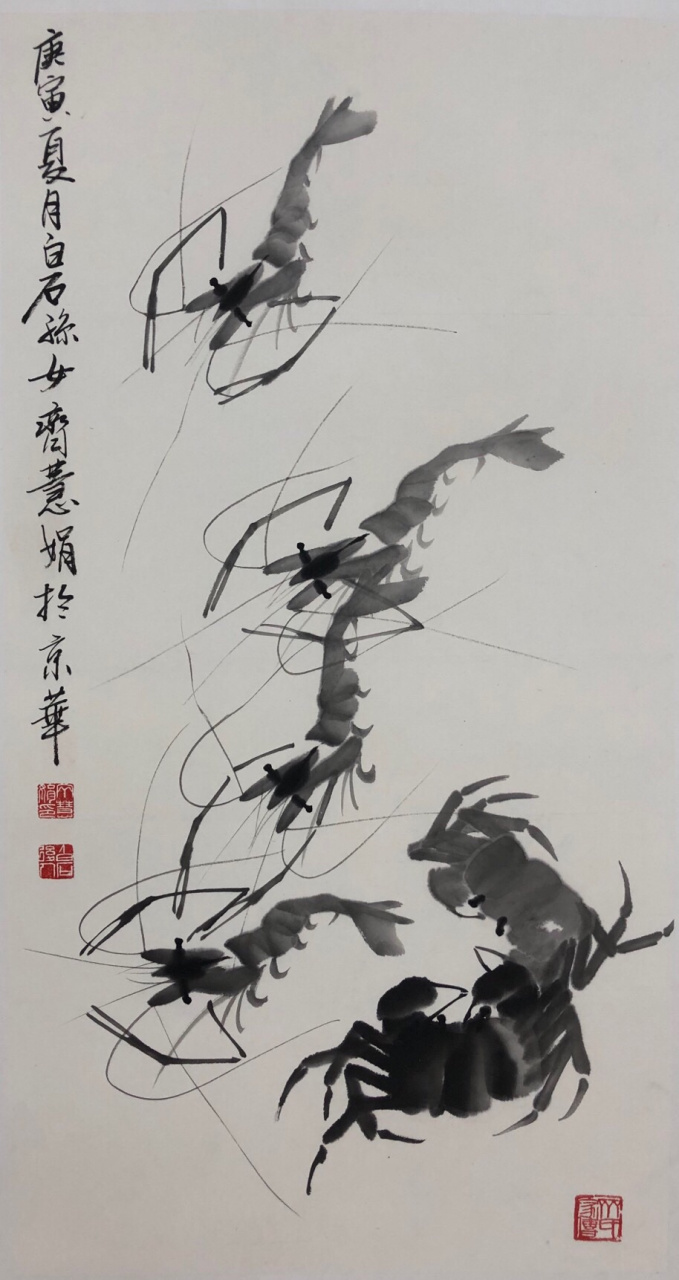 庚寅夏月白石孫女齊慧娟於京華